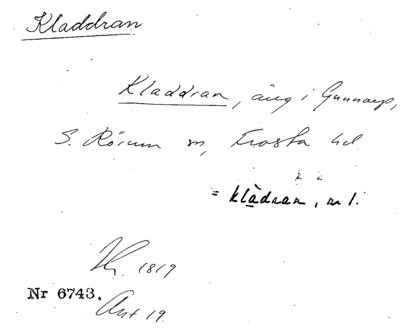 Kladdran
Kladdran, äng i Gunnarp,
S. Rörum sn, Frosta hd
= klàdran, m 1.
1819
Nr 6743.
Ant 19